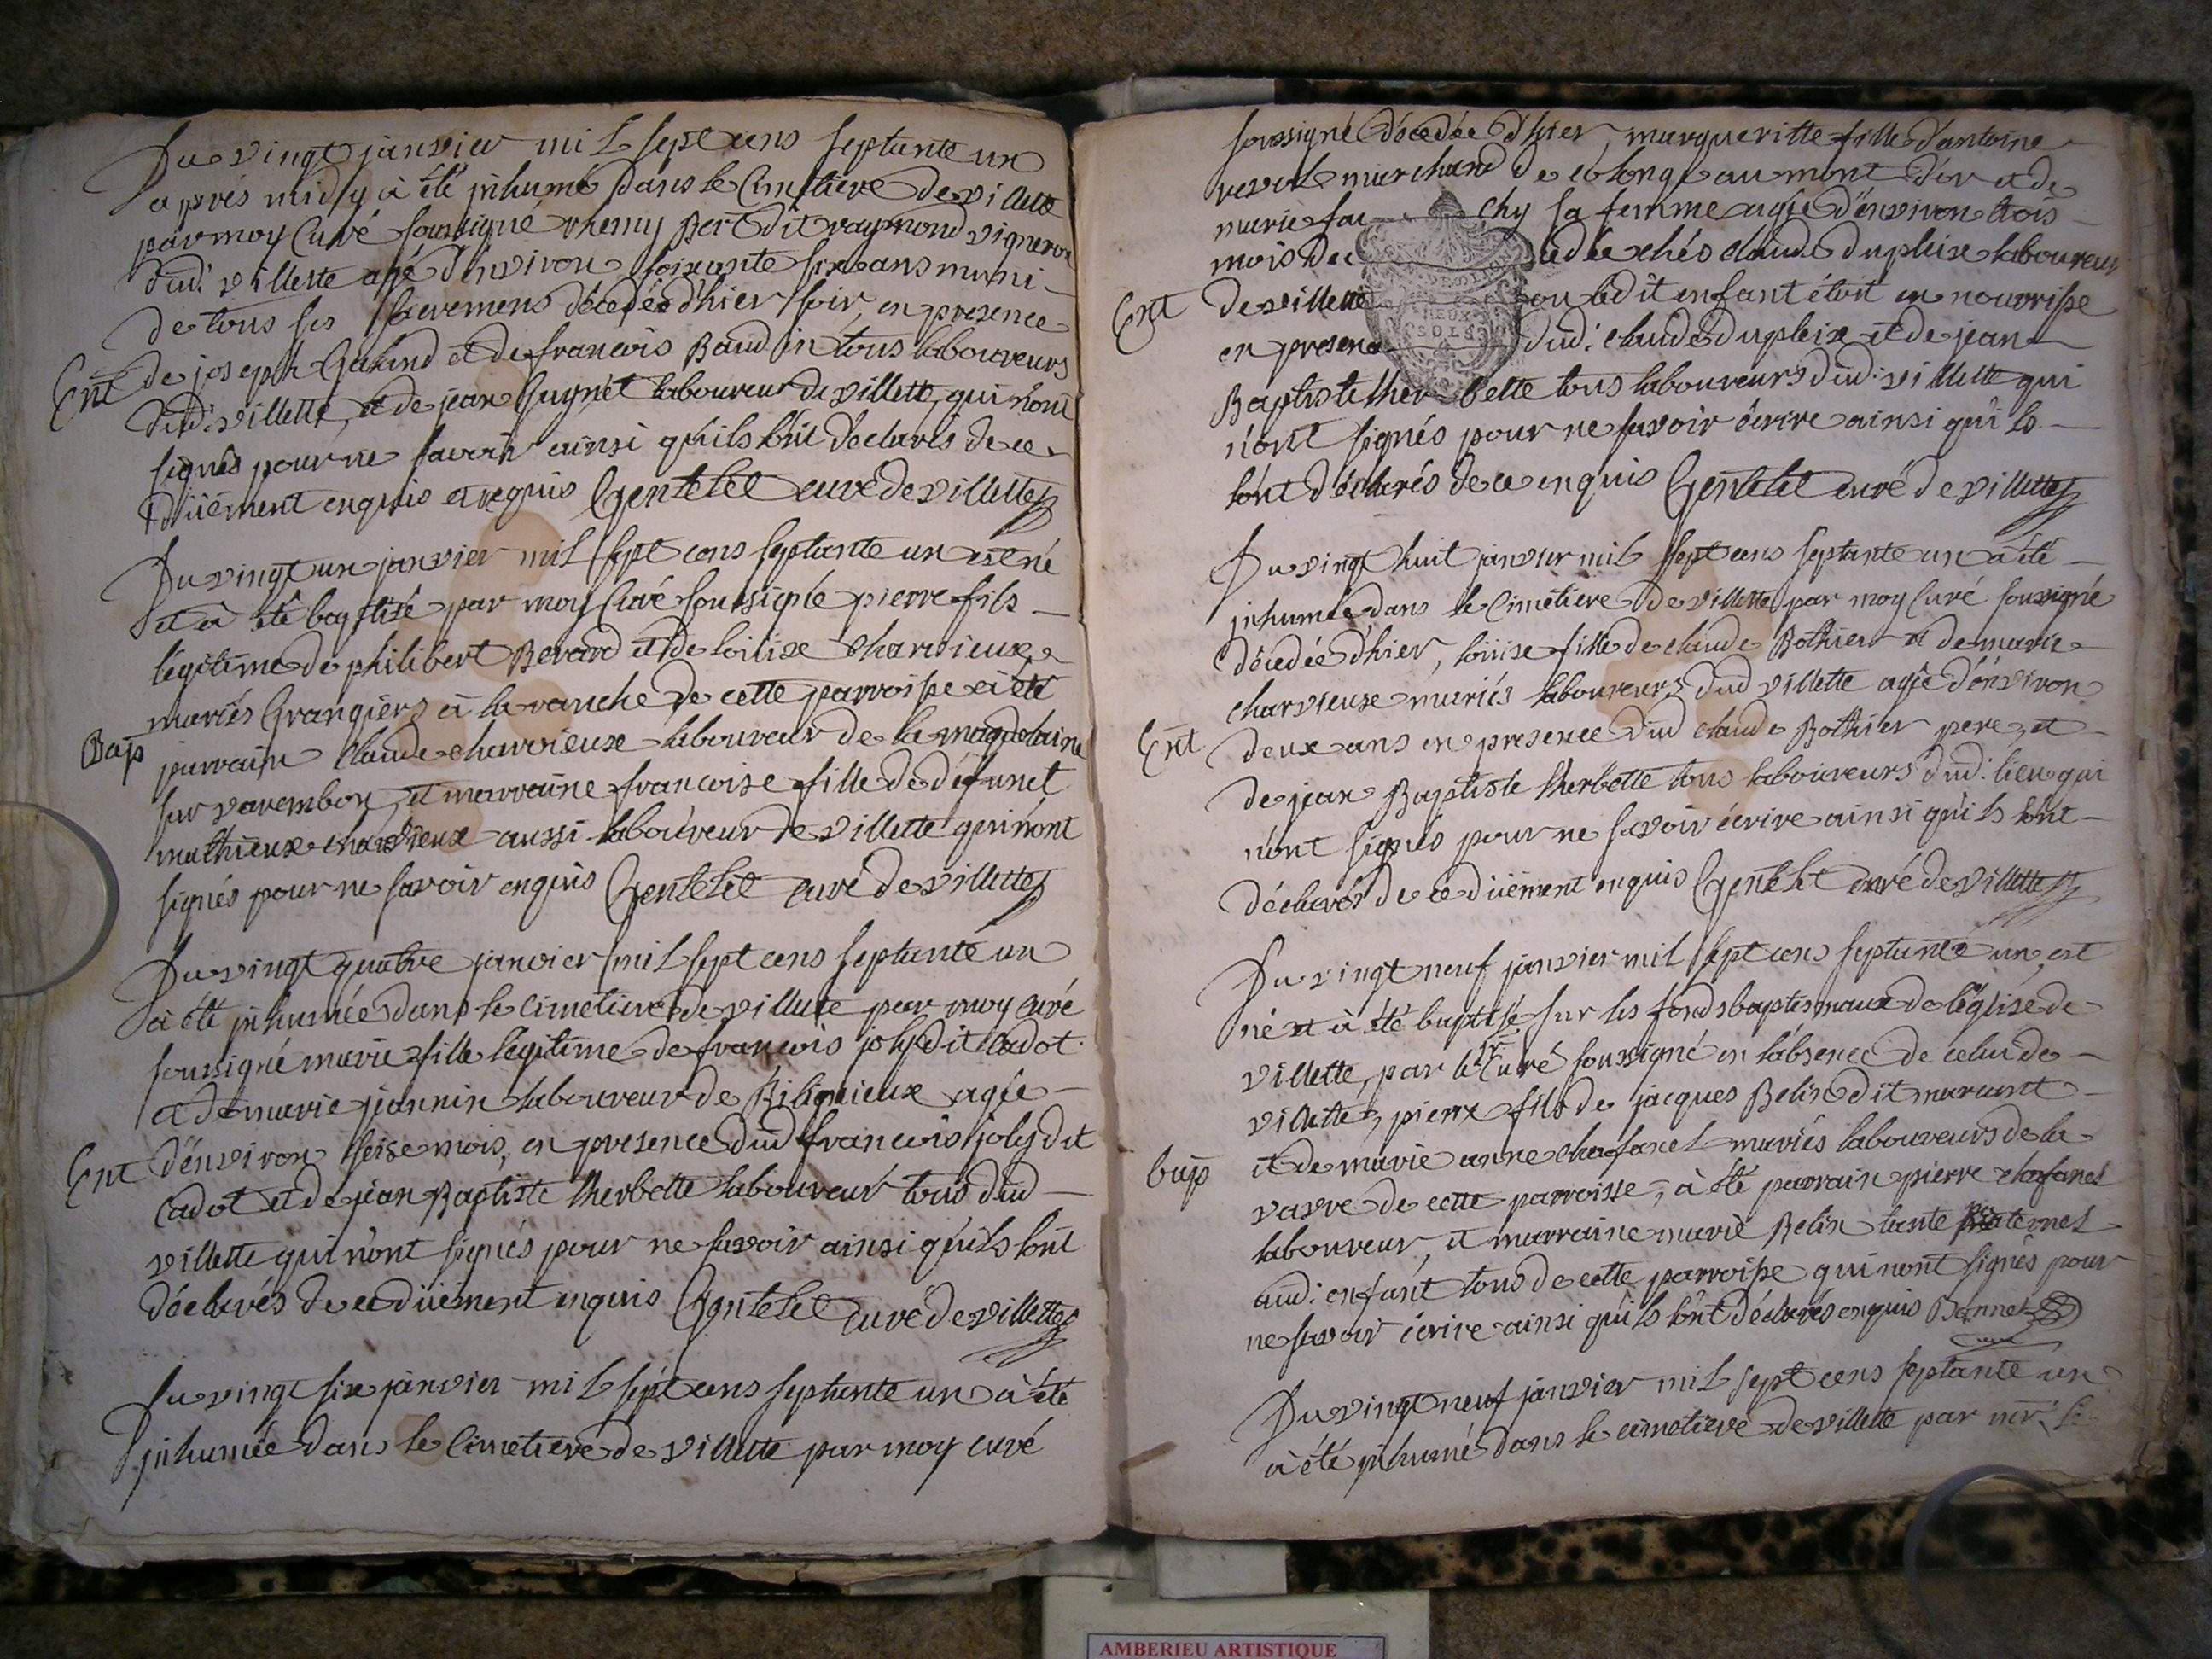 Du vingt janvier mil sept cens septante un
aprés midy à été inhumé dans le Cimetiere de villette
par moy Curé soussigné rhemy Bert dit raymond vigneron
dud: villette agé d'environ soixante six ans muni
de tous ses sacremens décedé d'hier soir, en presence
Ent
de joseph Galand et de francois Baudin tous laboureurs
dud: villette, et de jean Guynet laboureur de villette, qui n'ont
signés pour ne savoir ainsi qu'ils l'ont déclarés de ce
düement enquis et requis Gentelet curé de villette
Du vingt un janvier mil sept cens septante un est né
et à été baptisé par moy Curé soussigné pierre fils
légitime de philibert Bevard et de loüise charvieux
mariés Grangiers à la ranche de cette parroisse à été
Bap
parrain claude charvieux laboureur de la magdelaine
sur varembon, et marraine francoise fille de défunct
mathieux charvieux aussi laboureur de villette qui n'ont
signés pour ne savoir enquis Gentelet curé de villette
Du vingt quatre janvier mil sept cens septante un
à été inhumée dans le Cimetiere de villette par moy curé
soussigné marie fille légitime de francois joly dit cadot
et de marie jannin laboureur de Bilignieux agée
Ent
d'environ seise mois, en presence dud francois joly dit
cadot et de jean Baptiste therbette laboureur tous dud
villette qui n'ont signés pour ne savoir ainsi qu'ils l'ont
déclarés de ce düement enquis Gentelet curé de villette
Du vingt six janvier mil sept cens septante un à été
inhumée dans le Cimetiere de villette par moy curé
soussigné décedée d'hier, margueritte fille d'antoine
revol marchand de colonge au mont d'or et de
marie fau chy sa femme agée d'environ trois
mois dec edée chés claude dupleix laboureur
Ent
de villette ou ledit enfant étoit en nourrisse
en presence dud: claude dupleix et de jean
Baptiste therbette tous laboureurs dud: villette qui
n'ont signés pour ne savoir écrire ainsi qu'ils
l'ont déclarés de ce enquis Gentelet curé de villette
Du vingt huit janvier mil sept cens septante un à été
inhumée dans le Cimetiere de villette par moy Curé soussigné
décedée d'hier, loüise fille de claude Bothier et de marie
charvieux mariés laboureurs dud villette agée d'environ
Ent
deux ans en presence dud claude Bothier pere, et
de jean Baptiste therbette tous laboureurs dud: lieu qui
n'ont signés pour ne savoir écrire ainsi qu'ils l'ont
déclarés de ce düement enquis Gentelet curé de villette
Du vingt neuf janvier mil sept cens septante un, est
né et à été baptisé sur les fonds baptismaux de l'église de
villette, par le sr Curé soussigné en l'absence de celui de
villette, pierre fils de jacques Belin dit marant
bap
et de marie anne chafanel mariés laboureurs de la
vavre de cette parroisse, à été parrain pierre chafanel
laboureur, et marraine marie Belin tante paternel
aud: enfant tous de cette parroisse qui n'ont signés pour
ne savoir écrire ainsi qu'ils l'ont déclarés enquis Bonnet
Du vingt neuf janvier mil sept cens septante un
à été inhumé dans le cimetiere de villette par mr. le
AMBERIEU ARTISTIQUE